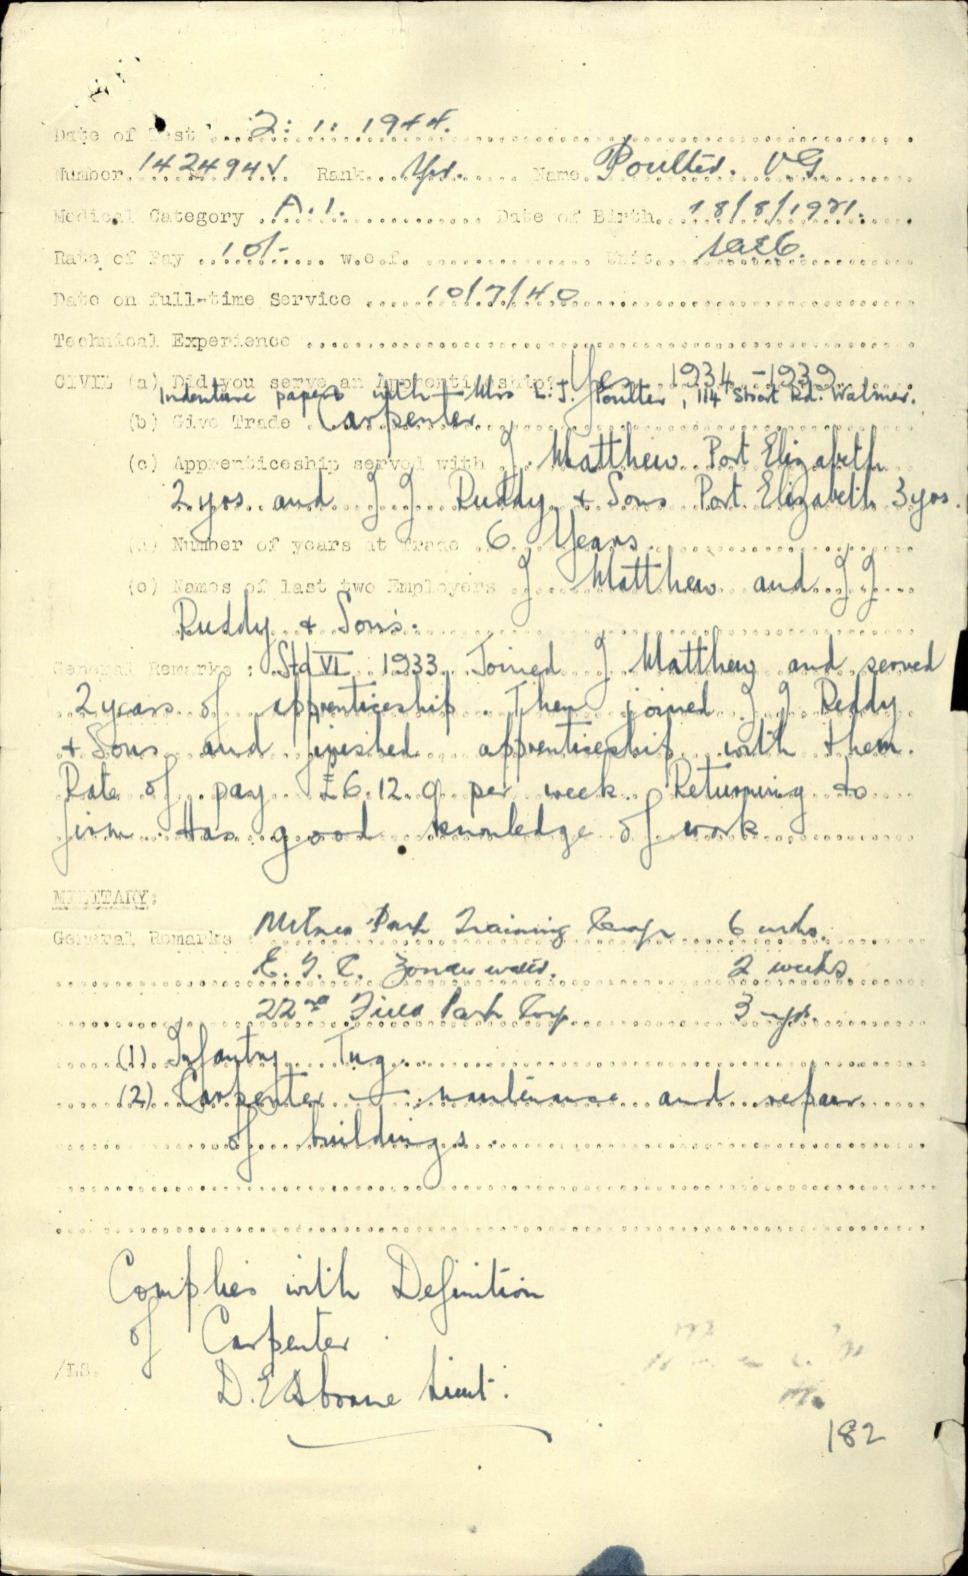 Date of Test 2: 1: 1944.
Number 142494V Rank Name Poulter. V G.
Medical Category A.1. Date of Birth 18/8/1921.
Rate of Pay 10/- w.e.f. Unit
Date on full-time Service 10/7/40
Technical Experience
CIVIL (a) Did you serve an Apprenticeship? Yes 1934 - 1939
Indenture papers with Mrs L.J. Poulter, 114 Short Rd. Walmer.
(b) Give Trade Carpenter
(c) Apprenticeship served with J. Matthew Port Elizabeth
2 yrs. and J J Ruddy & Sons Port Elizabeth 3 yrs.
(d) Number of years at Trade 6 Years
(e) Names of last two Employers J Matthew and J J
Ruddy & Sons.
General Remarks : Std VI 1933. Joined J Matthew and served
2 years of apprenticeship. Then joined J J Reddy
& Sons and finished apprenticeship with them.
Rate of pay £6.12.9 per week. Returning to
firm. Has good knowledge of work
MILITARY:
General Remarks Milner Park Training Camp 6 mths.
E. T. C. Zonderwater. 2 weeks
22nd Field Park Coy 3 yrs.
(1) Infantry Tng.
(2) Carpenter - maintenance and repair
of buildings.
Complies with Definition
of Carpenter
/LS.
D. E Osborne Lieut.
182